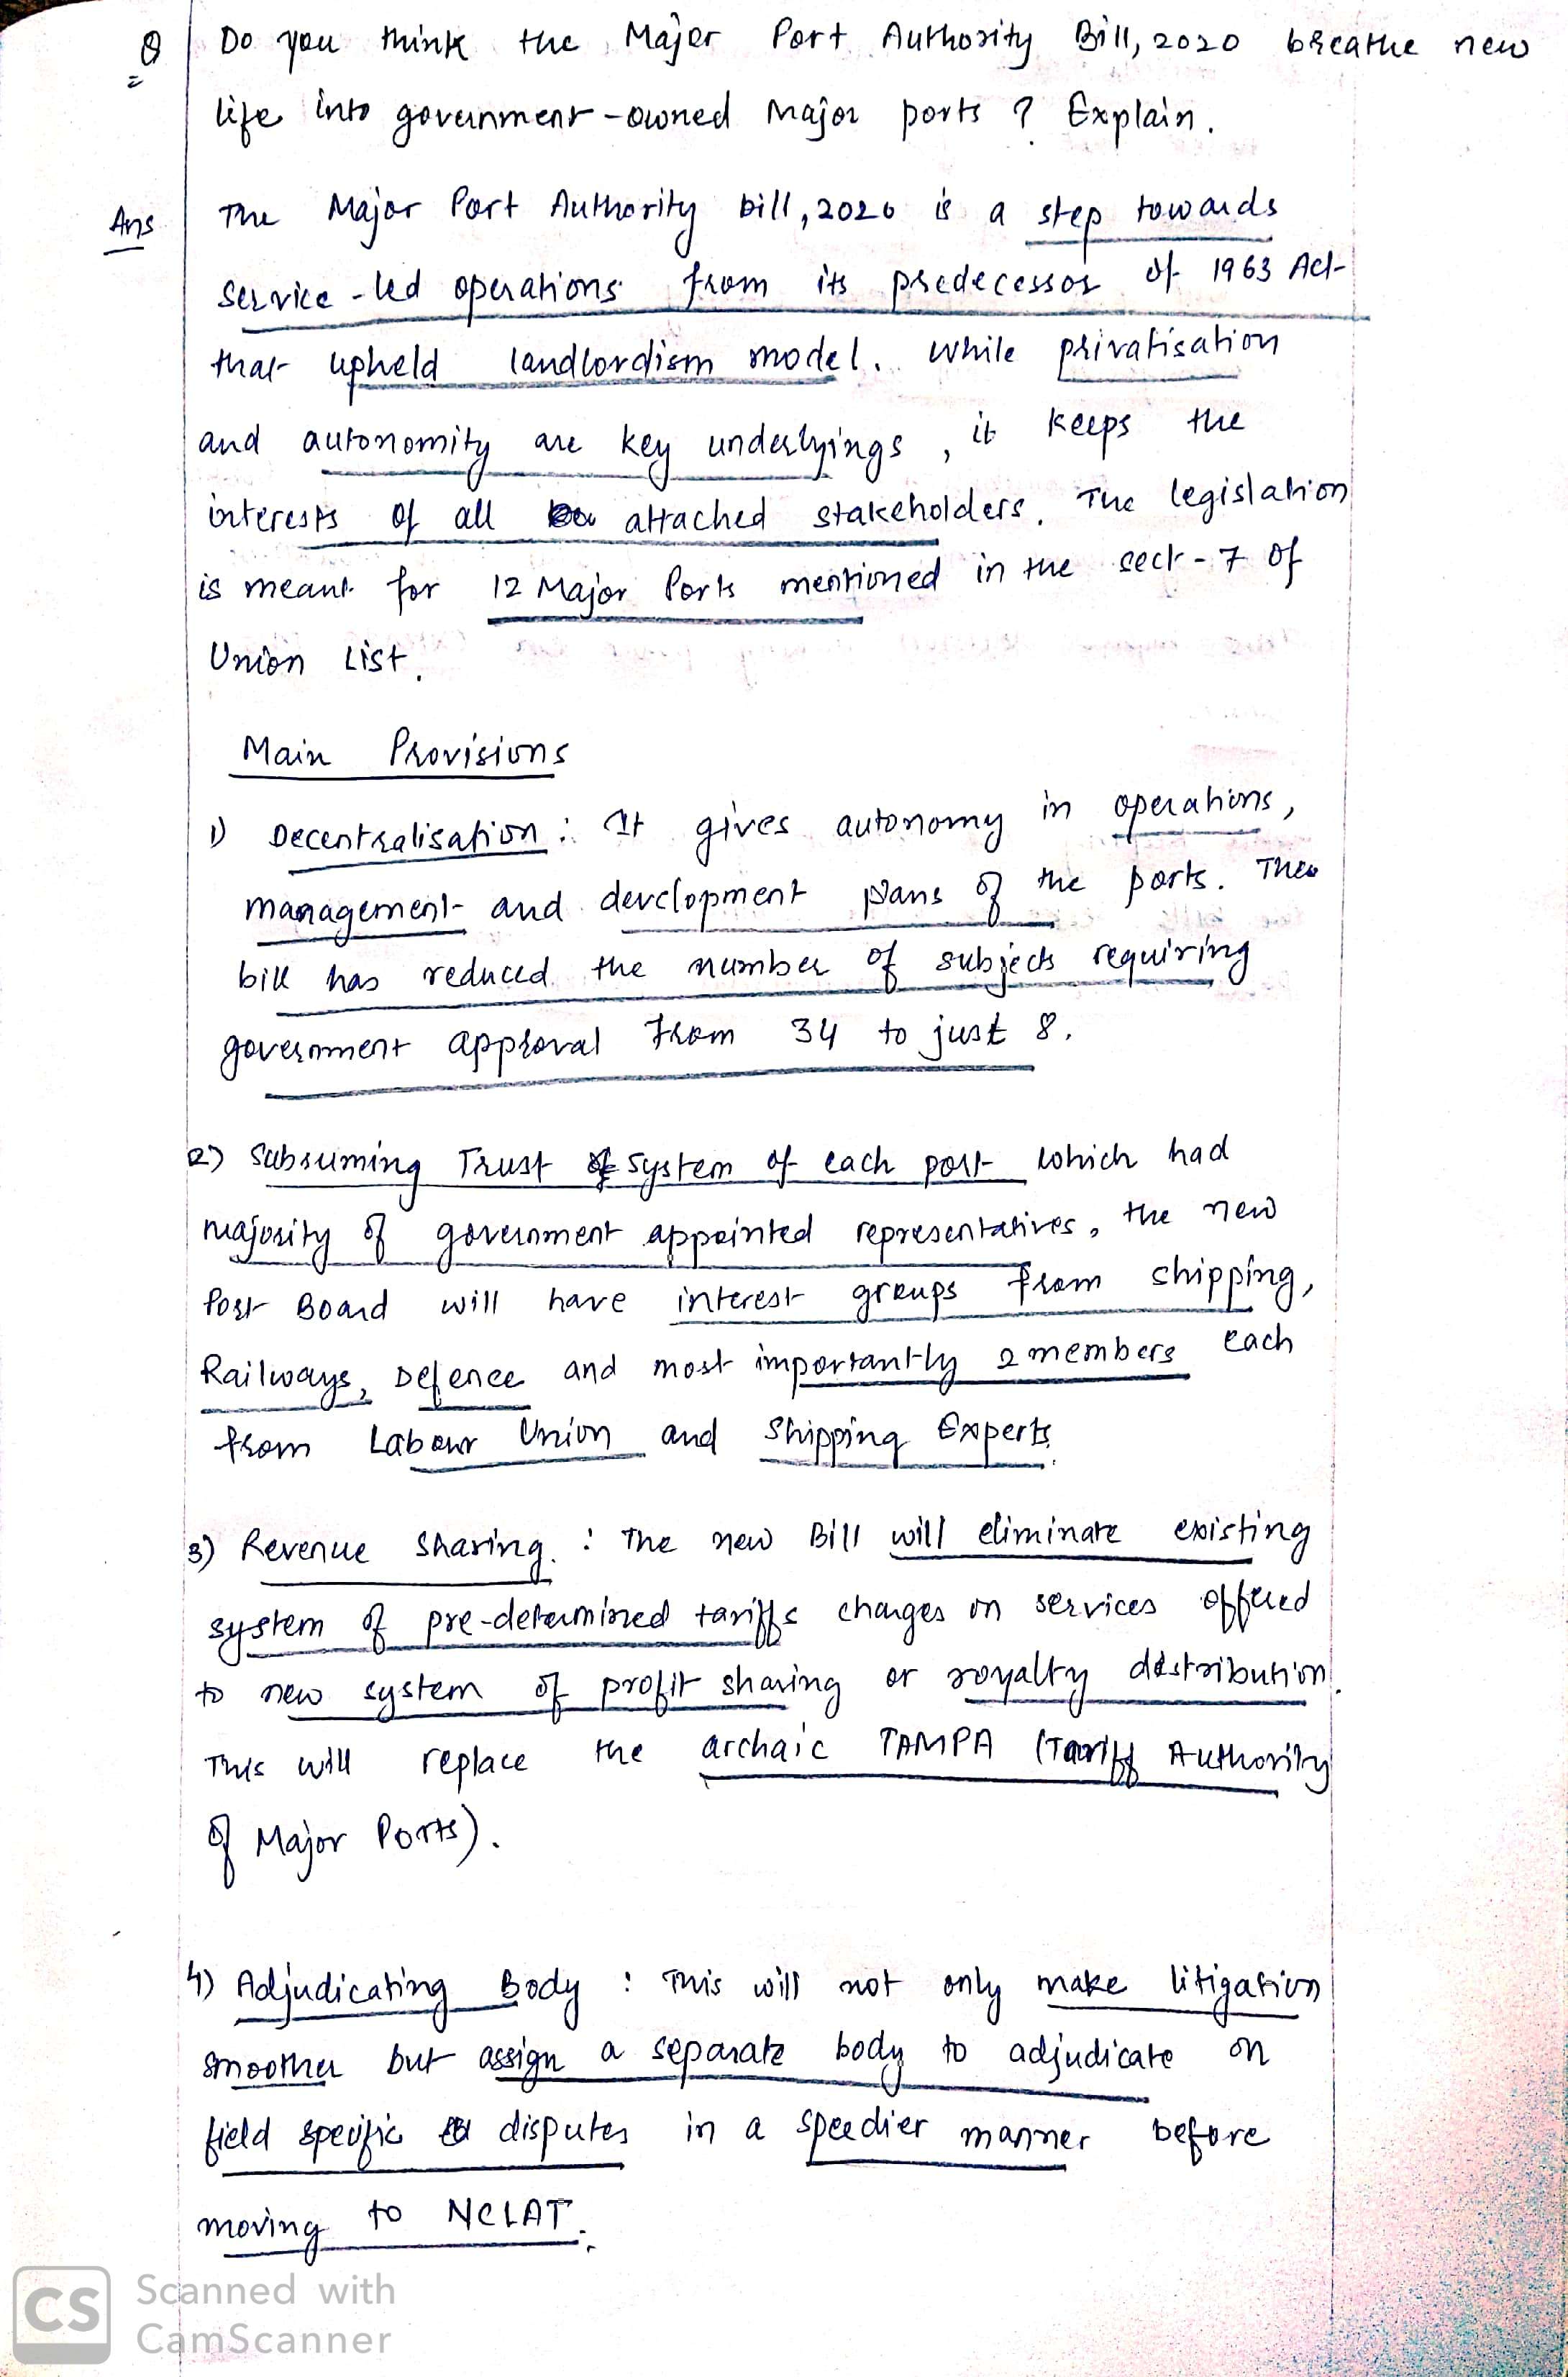 Q Do you think the Major Port Authority Bill, 2020 breathe new
life into government-owned Major ports ? Explain.
Ans The Major Port Authority bill, 2020 is a step towards
service-led operations from its predecessor of 1963 Act
that upheld landlordism model. While privatisation
and autonomity are key underlyings, it keeps the
interests of all attached stakeholders. The legislation
is meant for 12 Major Ports mentioned in the sect-7 of
Union List.
Main Provisions
1) Decentralisation : It gives autonomy in operations,
management and development plans of the ports. The
bill has reduced the number of subjects requiring
government approval from 34 to just 8.
2) Subsuming Trust system of each port which had
majority of government appointed representatives, the new
Port Board will have interest groups from shipping,
Railways, Defence and most importantly 2 members each
from Labour Union and Shipping Experts.
3) Revenue Sharing. : The new Bill will eliminate existing
system of pre-determined tariffs charges on services offered
to new system of profit sharing or royalty distribution.
This will replace the archaic TAMPA (Tariff Authority
of Major Ports).
4) Adjudicating Body : This will not only make litigation
smoother but assign a separate body to adjudicate on
field specific disputes in a speedier manner before
moving to NCLAT.
CS Scanned with
CamScanner